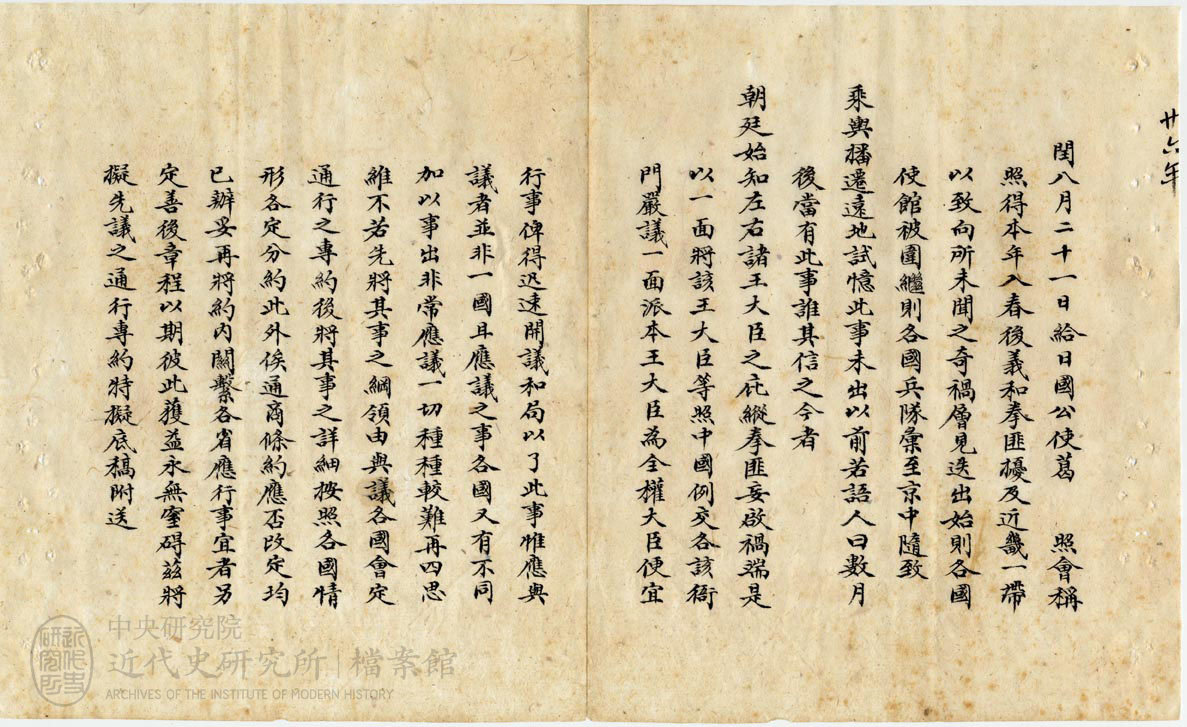 廿六年
閏八月二十一日給日國公使葛　照會稱
照得本年入春後義和拳匪擾及近畿一帶
以致向所未聞之奇禍層見迭出始則各國
使館被圍繼則各國兵隊彙至京中隨致
乘輿播遷遠地試憶此事未出以前若語人曰數月
後當有此事誰其信之今者
朝廷始知左右諸王大臣之庇縱拳匪妄啟禍端是
以一面將該王大臣等照中國例交各該衙
門嚴議一面派本王大臣為全權大臣便宜
行事俾得迅速開議和局以了此事惟應與
議者並非一國且應議之事各國又有不同
加以事出非常應議一切種種較難再四思
維不若先將其事之綱領由與議各國會定
通行之專約後將其事之詳細按照各國情
形各定分約此外俟通商條約應否改定均
已辦妥再將約內關繫各省應行事宜者另
定善後章程以期彼此獲益永無窒碍茲將
擬先議之通行專約特擬底稿附送
近代史研究所
中央研究院
近代史研究所|檔案館
ARCHIVES OF THE INSTITUTE OF MODERN HISTORY